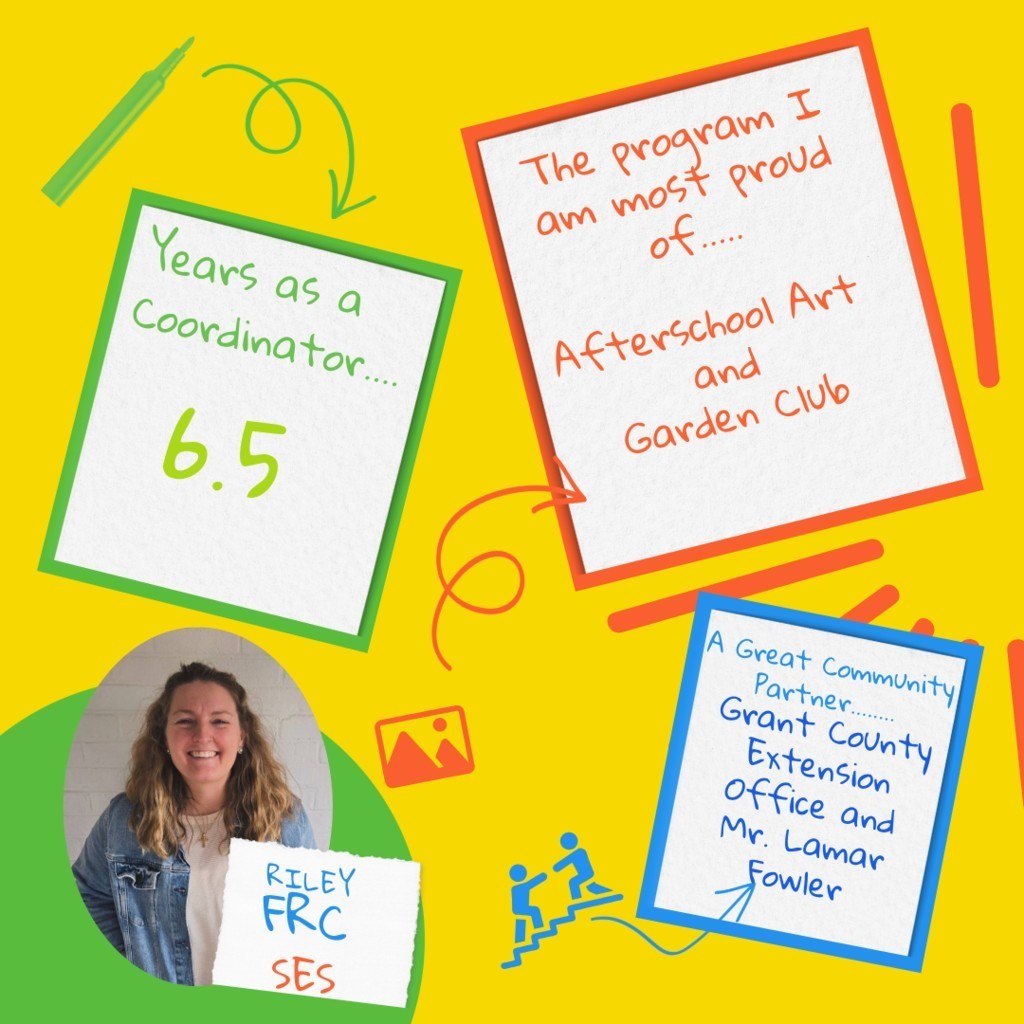 Years as a
Coordinator....
6.5
The program I
am most proud
of.....
Afterschool Art
and
Garden Club
A Great Community
Partner........
Grant County
Extension
Office and
Mr. Lamar
Fowler
RILEY
FRC
SES